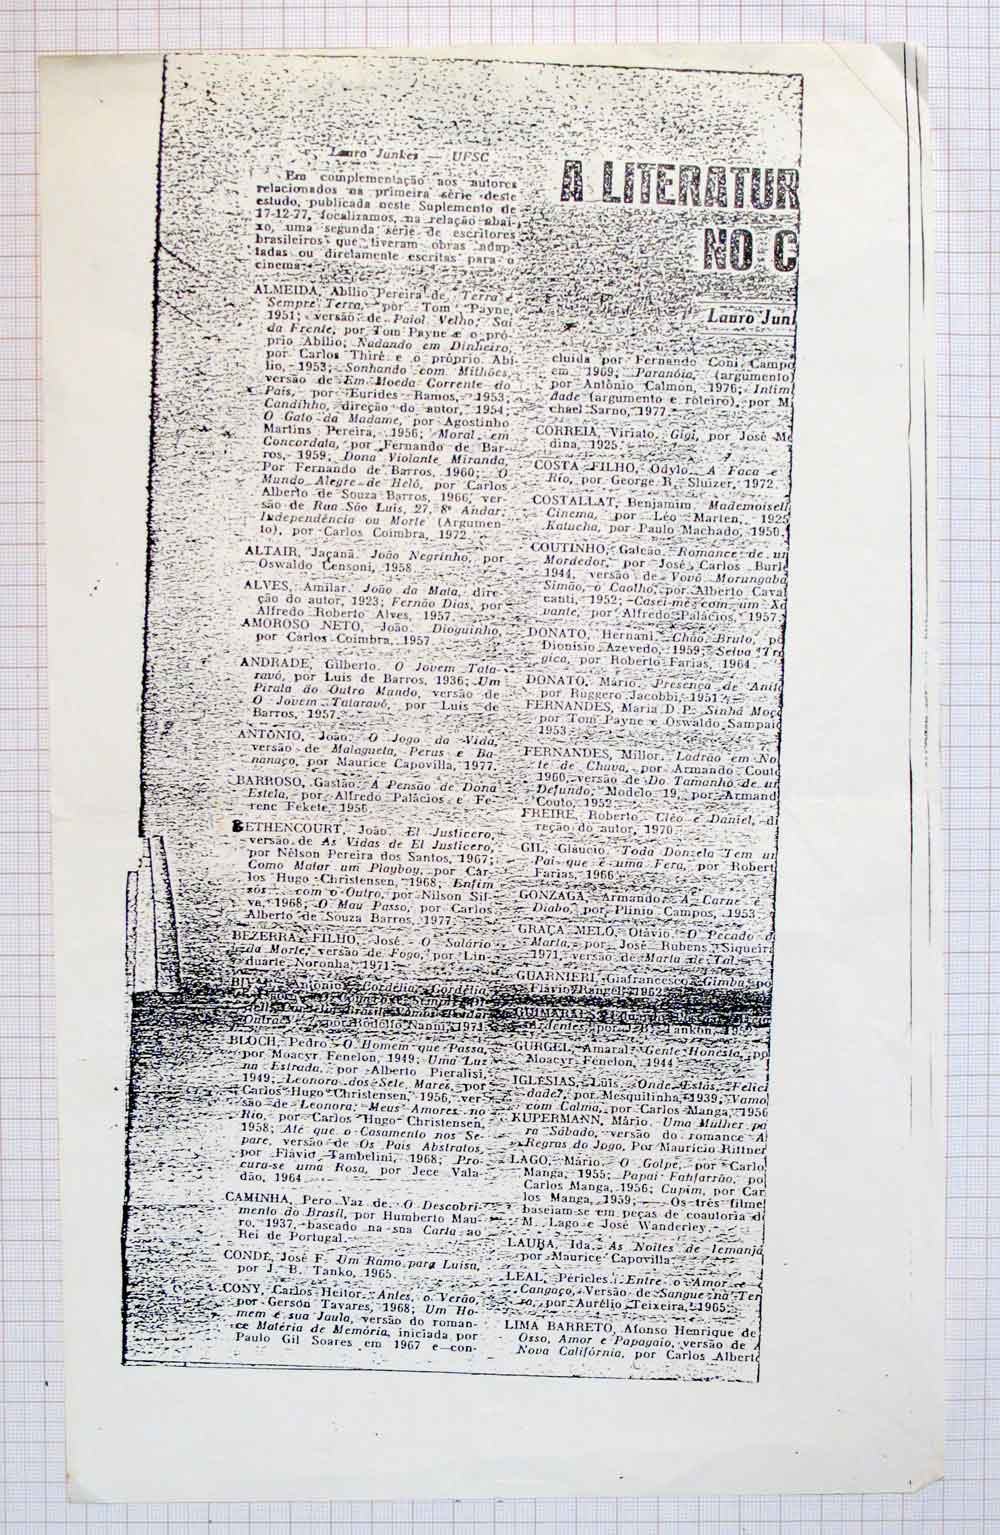 Lauro Junkes — UFSC
Em complementação aos autores
relacionados na primeira série deste
estudo, publicada neste Suplemento de
17-12-77, focalizamos, na relação abai-
xo, uma segunda série de escritores
brasileiros que tiveram obras adap-
tadas ou diretamente escritas para o
cinema:
ALMEIDA, Abílio Pereira de. Terra é
Sempre Terra, por Tom Payne,
1951; versão de Paiol Velho; Sai
da Frente, por Tom Payne e o pró-
prio Abílio; Nadando em Dinheiro,
por Carlos Thiré e o próprio Abí-
lio, 1953; Sonhando com Milhões,
versão de Em Moeda Corrente do
País, por Eurides Ramos, 1953;
Candinho, direção do autor, 1954;
O Gato da Madame, por Agostinho
Martins Pereira, 1956; Moral em
Concordata, por Fernando de Bar-
ros, 1959; Dona Violante Miranda,
Por Fernando de Barros, 1960; O
Mundo Alegre de Helô, por Carlos
Alberto de Souza Barros, 1966, ver-
são de Rua São Luis, 27, 8º Andar;
Independência ou Morte (Argumen-
to), por Carlos Coimbra, 1972.
ALTAIR, Jaçanã. João Negrinho, por
Oswaldo Censoni, 1958.
ALVES, Amilar. João da Mata, dire-
ção do autor, 1923; Fernão Dias, por
Alfredo Roberto Alves, 1957.
AMOROSO NETO, João. Dioguinho,
por Carlos Coimbra, 1957.
ANDRADE, Gilberto. O Jovem Tata-
ravô, por Luis de Barros, 1936; Um
Pirata do Outro Mundo, versão de
O Jovem Tataravô, por Luis de
Barros, 1957.
ANTÔNIO, João. O Jogo da Vida,
versão de Malagueta, Perus e Ba-
nanaço, por Maurice Capovilla, 1977.
BARROSO, Gastão. A Pensão de Dona
Estela, por Alfredo Palácios e Fe-
renc Fekete, 1956.
BETHENCOURT, João. El Justicero,
versão de As Vidas de El Justicero,
por Nélson Pereira dos Santos, 1967;
Como Matar um Playboy, por Car-
los Hugo Christensen, 1968; Enfim
sós com o Outro, por Nilson Sil-
va, 1968; O Mau Passo, por Carlos
Alberto de Souza Barros, 1977.
BEZERRA FILHO, José. O Salário
da Morte, versão de Fogo, por Lin-
duarte Noronha, 1971.
Antônio. Cordélia, Cordélia,
por Rodolfo Nanni, 1971.
BLOCH, Pedro. O Homem que Passa,
por Moacyr Fenelon, 1949; Uma Luz
na Estrada, por Alberto Pieralisi,
1949; Leonora dos Sete Mares, por
Carlos Hugo Christensen, 1956, ver-
são de Leonora; Meus Amores no
Rio, por Carlos Hugo Christensen,
1958; Até que o Casamento nos Se-
pare, versão de Os Pais Abstratos,
por Flávio Tambelini, 1968; Pro-
cura-se uma Rosa, por Jece Vala-
dão, 1964.
CAMINHA, Pero Vaz de. O Descobri-
mento do Brasil, por Humberto Mau-
ro, 1937, baseado na sua Carta ao
Rei de Portugal.
CONDÉ, José F. Um Ramo para Luisa,
por J. B. Tanko, 1965.
CONY, Carlos Heitor. Antes, o Verão,
por Gerson Tavares, 1968; Um Ho-
mem e sua Jaula, versão do roman-
ce Matéria de Memória, iniciada por
Paulo Gil Soares em 1967 e con-
A LITERATUR
NO C
Lauro Junk
cluída por Fernando Coni Campo
em 1969; Paranóia, (argumento)
por Antônio Calmon, 1976; Intimi
dade (argumento e roteiro), por M
chael Sarno, 1977.
CORREIA, Viriato. Gigi, por José Me
dina, 1925.
COSTA FILHO, Odylo. A Faca e
Rio, por George R. Sluizer, 1972.
COSTALLAT, Benjamim. Mademoisell
Cinema, por Léo Marten, 1925
Katucha, por Paulo Machado, 1950.
COUTINHO, Galeão. Romance de um
Mordedor, por José Carlos Burle
1944, versão de Vovô Morungaba
Simão, o Caolho, por Alberto Caval
canti, 1952; Casei-me com um Xa
vante, por Alfredo Palácios, 1957.
DONATO, Hernani. Chão Bruto, po
Dionísio Azevedo, 1959; Selva Trá
gica, por Roberto Farias, 1964.
DONATO, Mário. Presença de Anita
por Ruggero Jacobbi, 1951.
FERNANDES, Maria D.P. Sinhá Moça
por Tom Payne e Oswaldo Sampaio
1953.
FERNANDES, Millor. Ladrão em No
te de Chuva, por Armando Couto
1960, versão de Do Tamanho de um
Defunto; Modelo 19, por Armand
Couto, 1952.
FREIRE, Roberto. Cléo e Daniel, di
reção do autor, 1970.
GIL, Gláucio. Toda Donzela Tem um
Pai que é uma Fera, por Robert
Farias, 1966.
GONZAGA, Armando. A Carne é
Diabo, por Plinio Campos, 1953.
GRAÇA MELO, Otávio. O Pecado d
Marta, por José Rubens Siqueira
1971, versão de Marta de Tal.
GUARNIERI, Giafrancesco. Gimba, po
Flávio Rangel, 1962.
GUIMARÃES,
GURGEL, Amaral. Gente Honesta, po
Moacyr Fenelon, 1944.
IGLÉSIAS, Luis. Onde Estás, Felici
dade?, por Mesquitinha, 1939; Vamo
com Calma, por Carlos Manga, 1956
KUPERMANN, Mário. Uma Mulher pa
ra Sábado, versão do romance A
Regras do Jogo, Por Maurício Rittner
LAGO, Mário. O Golpe, por Carlo
Manga, 1955; Papai Fanfarrão, po
Carlos Manga, 1956; Cupim, por Car
los Manga, 1959; — Os três filme
baseiam-se em peças de coautoria de
M. Lago e José Wanderley.
LAURA, Ida. As Noites de Iemanjá
por Maurice Capovilla.
LEAL, Péricles. Entre o Amor e
Cangaço, Versão de Sangue na Ter
ra, por Aurélio Teixeira, 1965.
LIMA BARRETO, Afonso Henrique de
Osso, Amor e Papagaio, versão de A
Nova Califórnia, por Carlos Alberto